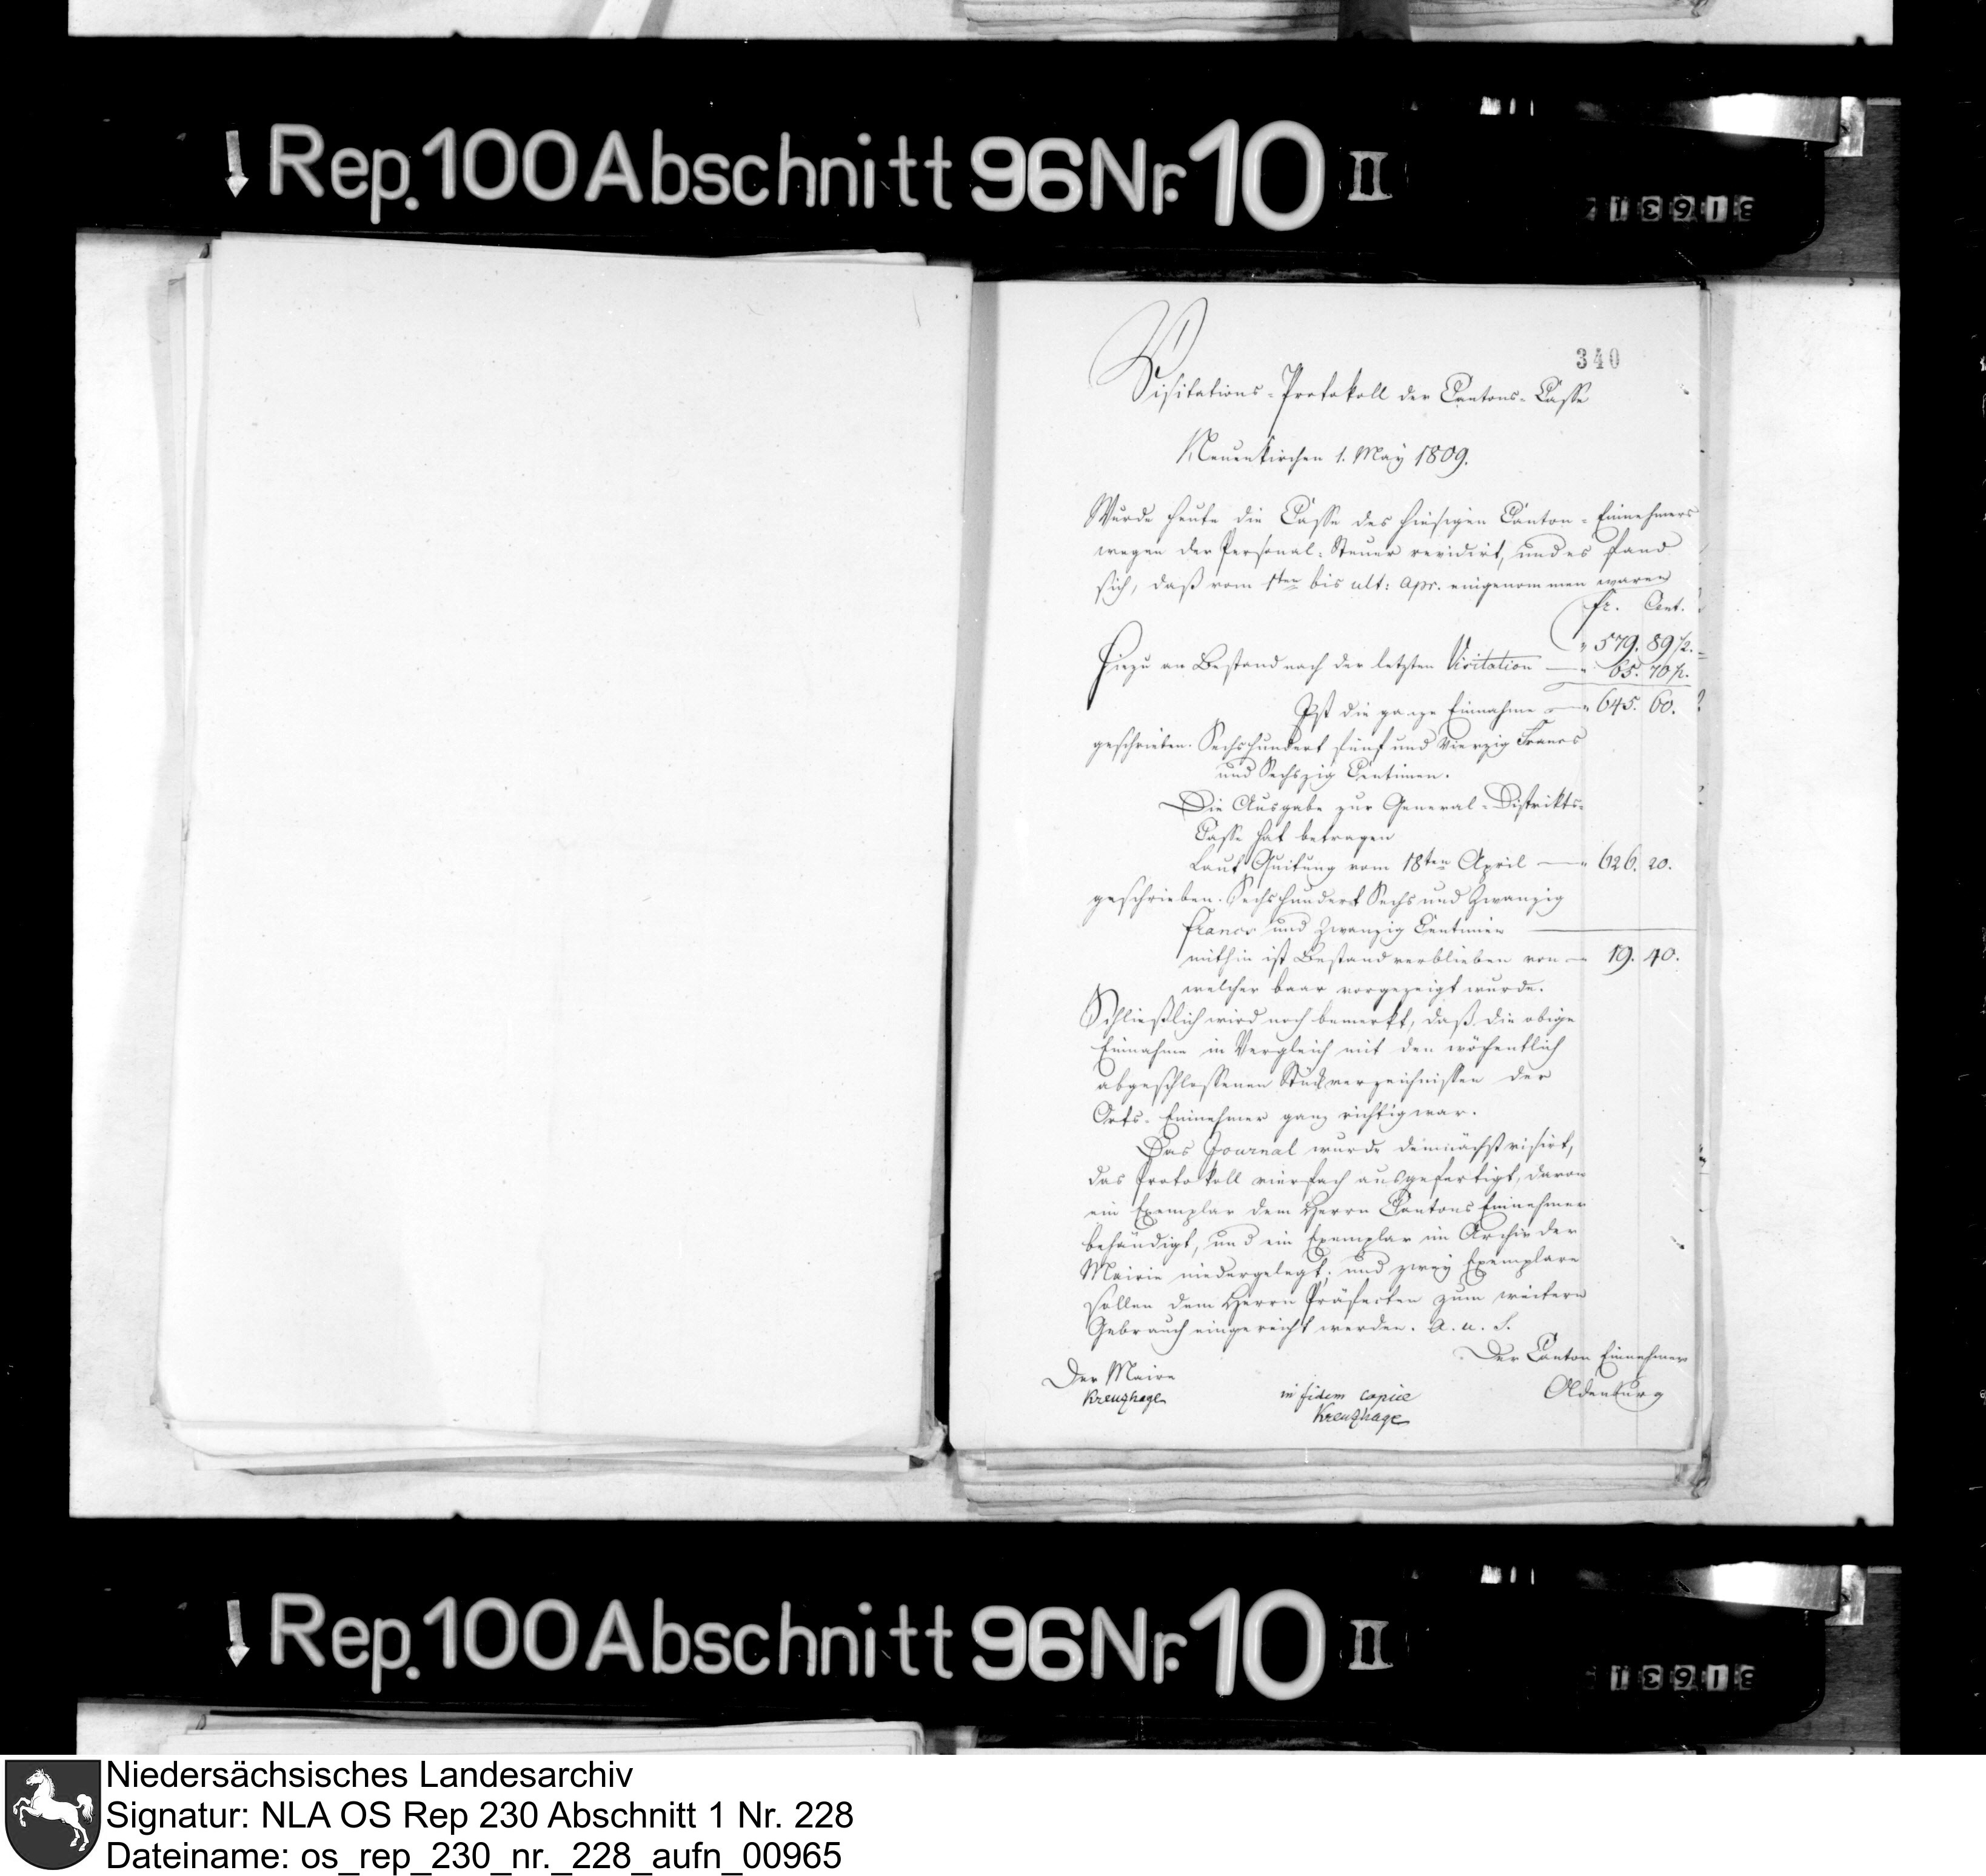 Rep. 100 Abschnitt 96 Nr. 10 II
340
Visitations-Protokoll der Cantons-Casse
Neuenkirchen 1. May 1809.
Wurde heute die Casse des hiesigen Canton-Einnehmers
wegen der Personal-Steuer revidirt, und es fand
sich, daß vom 1ten bis ult: Apr. eingenommen waren
fr. Cent.
" 579. 89 1/2.
Hiezu an Bestand nach der letzten Visitation — " 65. 70 1/2.
Ist die ganze Einnahme — " 645. 60.
geschrieben. Sechshundert fünf und Vierzig Francs
und Sechszig Centimen.
Die Ausgabe zur General-Distrikts-
Casse hat betragen
Laut Quitung vom 18ten April — " 626. 20.
geschrieben. Sechshundert Sechs und Zwanzig
francs und Zwanzig Centimen
mithin ist Bestand verblieben von — 19. 40.
welcher baar vorgezeigt wurde.
Schließlich wird noch bemerkt, daß die obige
Einnahme in Vergleich mit den wöchentlich
abgeschlossenen Stückverzeichnissen der
Orts-Einnehmer ganz richtig war.
Das Journal wurde demnächst visirt,
das Protokoll vierfach ausgefertigt, davon
ein Exemplar dem Herrn Cantons Einnehmer
behändigt, und ein Exemplar im Archiv der
Mairie niedergelegt; und zwey Exemplare
sollen dem Herrn Präfecten zum weitern
Gebrauch eingereicht werden. a. u. s.
Der Canton Einnehmer
Der Maire
Kreuzhage
in fidem copiae
Oldenburg
Kreuzhage
Rep. 100 Abschnitt 96 Nr. 10 II
Niedersächsisches Landesarchiv
Signatur: NLA OS Rep 230 Abschnitt 1 Nr. 228
Dateiname: os_rep_230_nr._228_aufn_00965